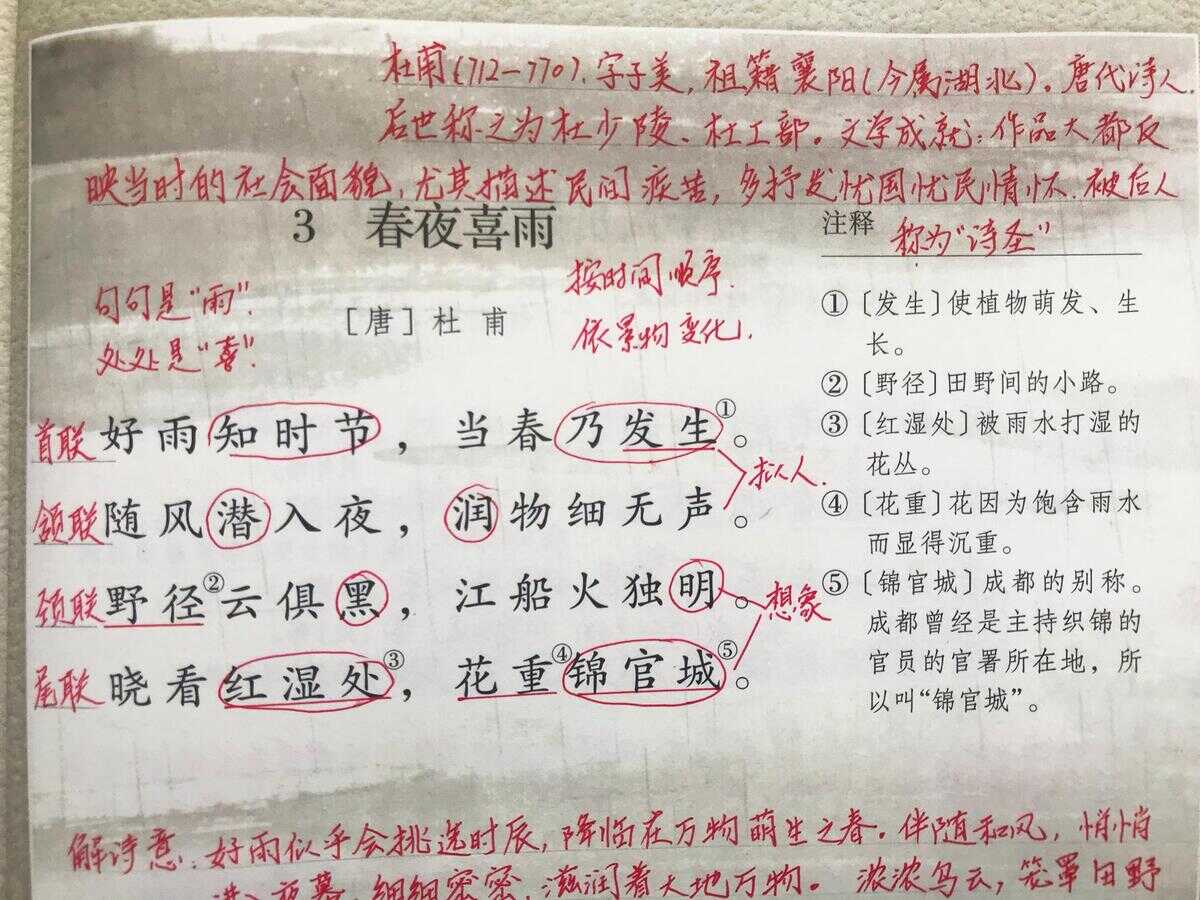 杜甫(712—770).字子美,祖籍襄阳(今属湖北)。唐代诗人.
后世称之为杜少陵、杜工部。文学成就:作品大都反
映当时的社会面貌,尤其描述民间疾苦,多抒发忧国忧民情怀.被后人
称为“诗圣”
3 春夜喜雨
句句是“雨”.
处处是“喜”.
[唐]杜 甫
按时间顺序.
依景物变化.
首联 好雨知时节，当春乃发生①。
颔联 随风潜入夜，润物细无声。
拟人.
颈联 野径②云俱黑，江船火独明。
尾联 晓看红湿处③，花重④锦官城⑤。
想象
注释
①〔发生〕使植物萌发、生
长。
②〔野径〕田野间的小路。
③〔红湿处〕被雨水打湿的
花丛。
④〔花重〕花因为饱含雨水
而显得沉重。
⑤〔锦官城〕成都的别称。
成都曾经是主持织锦的
官员的官署所在地，所
以叫“锦官城”。
解诗意:好雨似乎会挑选时辰,降临在万物萌生之春。伴随和风,悄悄
进入夜幕.细细密密,滋润着大地万物。浓浓乌云,笼罩田野